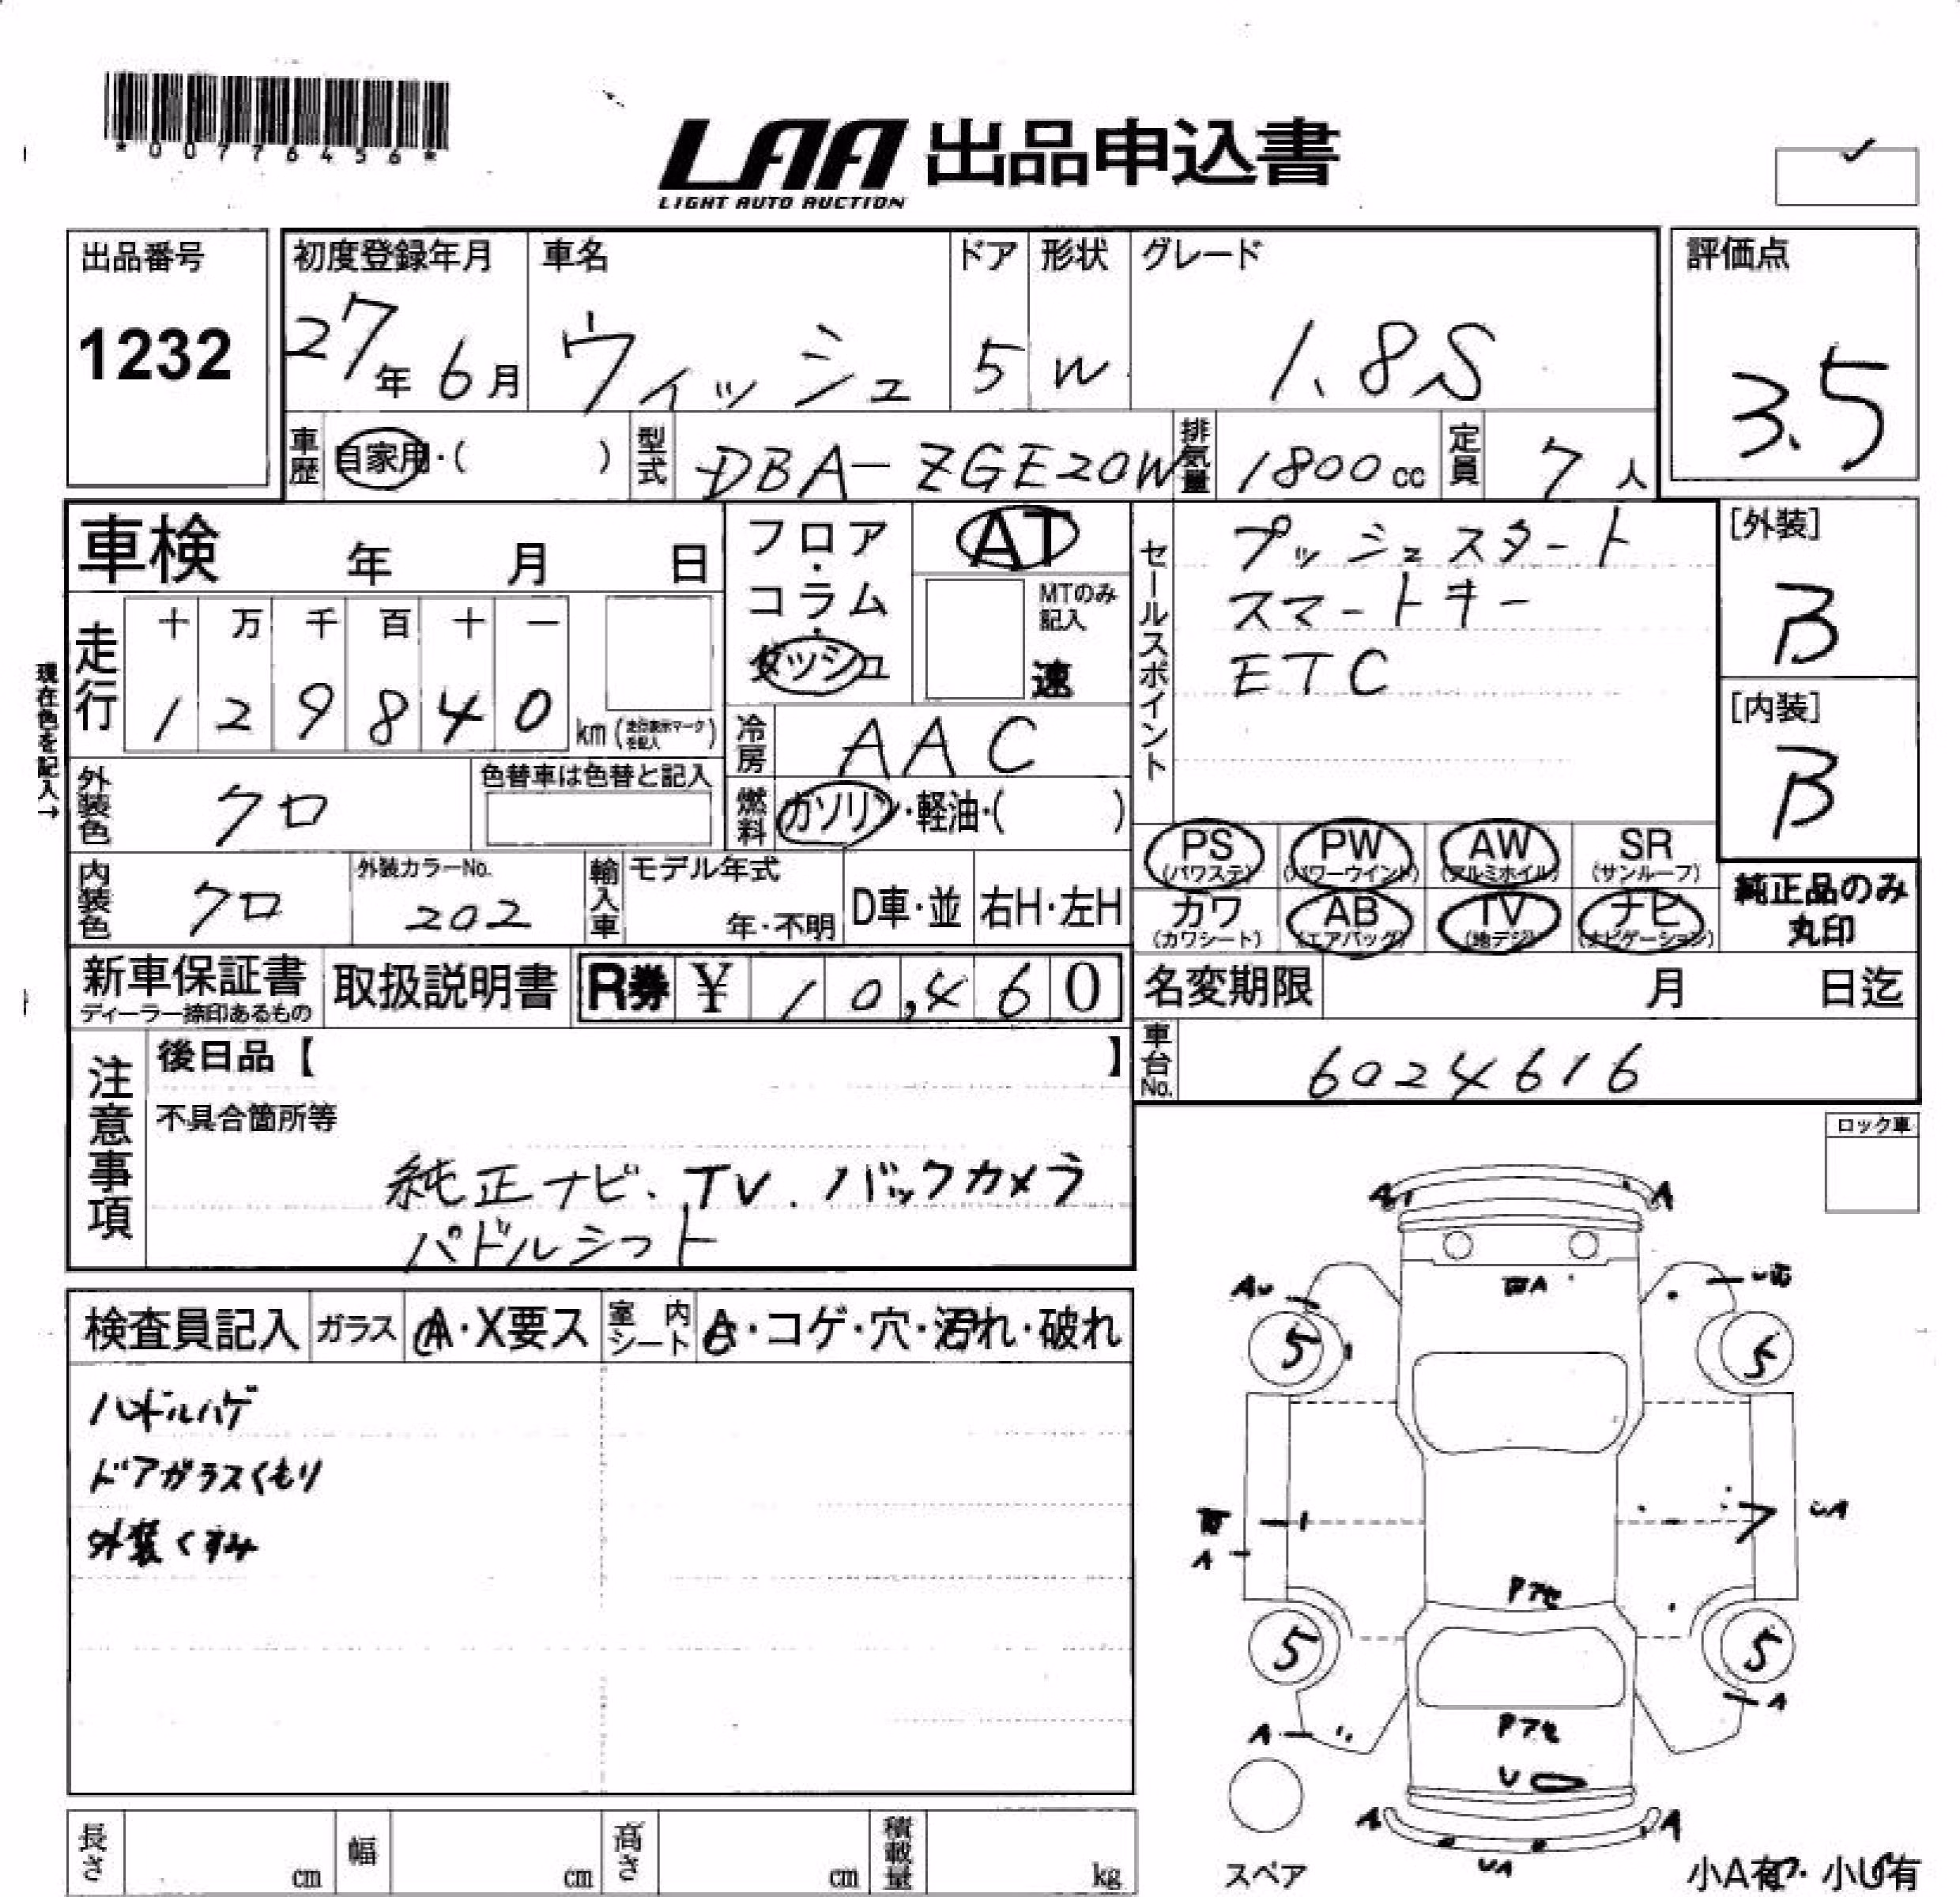 *00776456*
LAA 出品申込書
LIGHT AUTO AUCTION
出品番号
1232
初度登録年月
27年 6月
車名
ウィッシュ
ドア
5
形状
W
グレード
1.8S
評価点
3.5
車歴 自家用・( )
型式 DBA-ZGE20W
排気量 1800cc
定員 7人
車検 年 月 日
フロア・コラム・ダッシュ
AT
MTのみ記入
速
セールスポイント
プッシュスタート
スマートキー
ETC
[外装]
B
[内装]
B
現在色を記入→
走行
十 万 千 百 十 一
1 2 9 8 4 0 km (走行表示マークを記入)
冷房 AAC
外装色 クロ
色替車は色替と記入
燃料 ガソリン・軽油・( )
PS (パワステ)
PW (パワーウインド)
AW (アルミホイル)
SR (サンルーフ)
カワ (カワシート)
AB (エアバッグ)
TV (地デジ)
ナビ (ナビゲーション)
純正品のみ丸印
内装色 クロ
外装カラーNo.
202
輸入車
モデル年式
年・不明
D車・並
右H・左H
新車保証書
ディーラー捺印あるもの
取扱説明書
R券 ¥ 10,460
名変期限 月 日迄
車台No. 6024616
注意事項
後日品【 】
不具合箇所等
純正ナビ、TV、バックカメラ
パドルシフト
ロック車
検査員記入
ガラス
A・X要ス
室内シート
・コゲ・穴・汚れ・破れ
ハンドルハゲ
ドアガラスくもり
外装くすみ
A A
AU
A
5 5
A
UA
Pアセ
5 5
A
A
Pアセ
U
A A
UA
スペア
小A有 小U有
長さ cm
幅 cm
高さ cm
積載量 kg